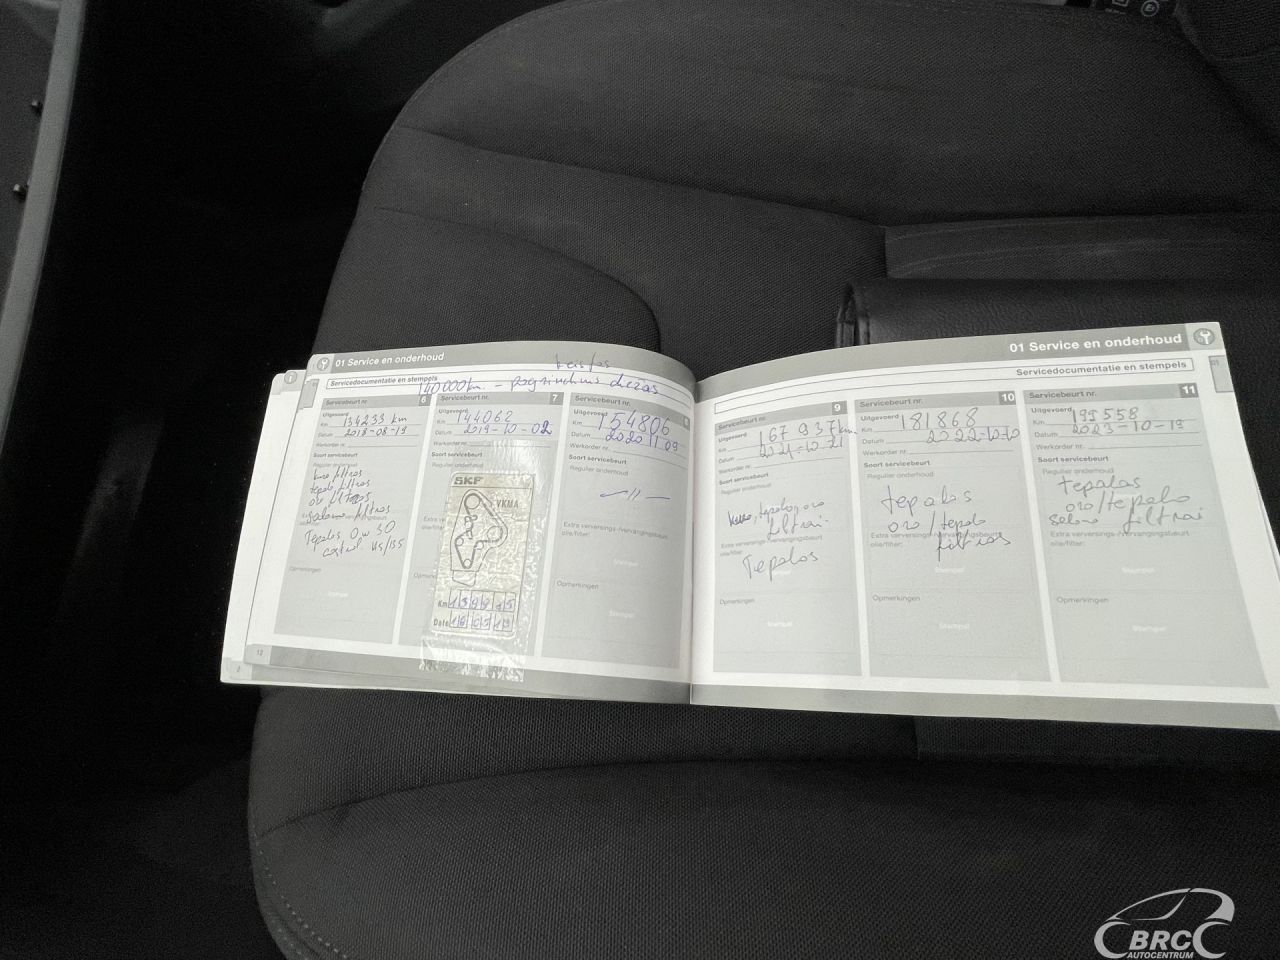 01 Service en onderhoud
Servicedocumentatie en stempels
keistas
140000km. – pagrindinis diržas
Servicebeurt nr. 6
Uitgevoerd
Km 134233 km
Datum 2018-08-19
Werkorder nr.
Soort servicebeurt
Regulier onderhoud
kuro filtras
tepalo filtras
oro filtras
salono filtras
Tepalas 0w30
castrol
Opmerkingen
Stempel
Servicebeurt nr. 7
Uitgevoerd
Km 144062
Datum 2019-10-02
Werkorder nr.
Soort servicebeurt
Regulier onderhoud
SKF
VKMA
Km
Date
Servicebeurt nr.
Uitgevoerd
Km 154806
Datum 2020 11 09
Werkorder nr.
Soort servicebeurt
Regulier onderhoud
–//–
Extra verversings-/vervangingsbeurt
olie/filter:
Stempel
Opmerkingen
Stempel
12
2
01 Service en onderhoud
Servicedocumentatie en stempels
01
Servicebeurt nr. 9
Uitgevoerd
Km 167 937km
Datum 2021-10-21
Werkorder nr.
Soort servicebeurt
Regulier onderhoud
kuro, tepalo, oro
filtrai
Extra verversings-/vervangingsbeurt
olie/filter:
Tepalas
Stempel
Opmerkingen
Stempel
Servicebeurt nr. 10
Uitgevoerd
Km 181868
Datum 2022-10-10
Werkorder nr.
Soort servicebeurt
Regulier onderhoud
tepalas
oro/tepalo
filtras
Extra verversings-/vervangingsbeurt
olie/filter:
Stempel
Opmerkingen
Stempel
Servicebeurt nr. 11
Uitgevoerd
Km 195558
Datum 2023-10-19
Werkorder nr.
Soort servicebeurt
Regulier onderhoud
Tepalas
oro/tepalo
salono filtrai
Extra verversings-/vervangingsbeurt
olie/filter:
Stempel
Opmerkingen
Stempel
BRC
AUTOCENTRUM